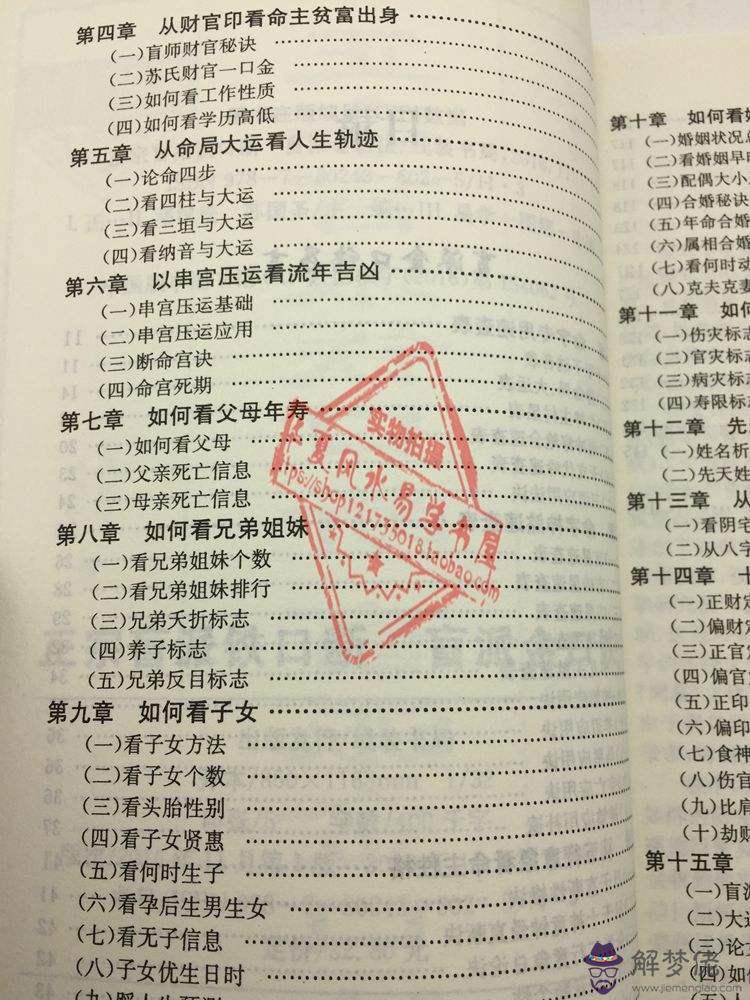 第四章 从财官印看命主贫富出身
(一)盲师财官秘诀
(二)苏氏财官一口金
(三)如何看工作性质
(四)如何看学历高低
第五章 从命局大运看人生轨迹
(一)论命四步
(二)看四柱与大运
(三)看三垣与大运
(四)看纳音与大运
第六章 以串宫压运看流年吉凶
(一)串宫压运基础
(二)串宫压运应用
(三)断命宫诀
(四)命宫死期
第七章 如何看父母年寿
(一)如何看父母
(二)父亲死亡信息
(三)母亲死亡信息
第八章 如何看兄弟姐妹
(一)看兄弟姐妹个数
(二)看兄弟姐妹排行
(三)兄弟夭折标志
(四)养子标志
(五)兄弟反目标志
第九章 如何看子女
(一)看子女方法
(二)看子女个数
(三)看头胎性别
(四)看子女贤惠
(五)看何时生子
(六)看孕后生男生女
(七)看无子信息
(八)子女优生日时
第十章 如何看
(一)婚姻状况
(二)看婚姻早
(三)配偶大小
(四)合婚秘诀
(五)年命合婚
(六)属相合婚
(七)看何时动
(八)克夫克妻
第十一章 如何
(一)伤灾标志
(二)官灾标志
(三)病灾标志
(四)寿限标志
第十二章 先
(一)姓名析
(二)先天姓
第十三章 从
(一)看阴宅
(二)从八字
第十四章 十
(一)正财定
(二)偏财定
(三)正官定
(四)偏官
(五)正印
(六)偏印
(七)食神
(八)伤官
(九)比肩
(十)劫财
第十五章
(一)盲派
(二)大运
(三)论
(四)如
实物拍摄
华夏风水易学书屋
解梦佬
www.jiemenglao.com